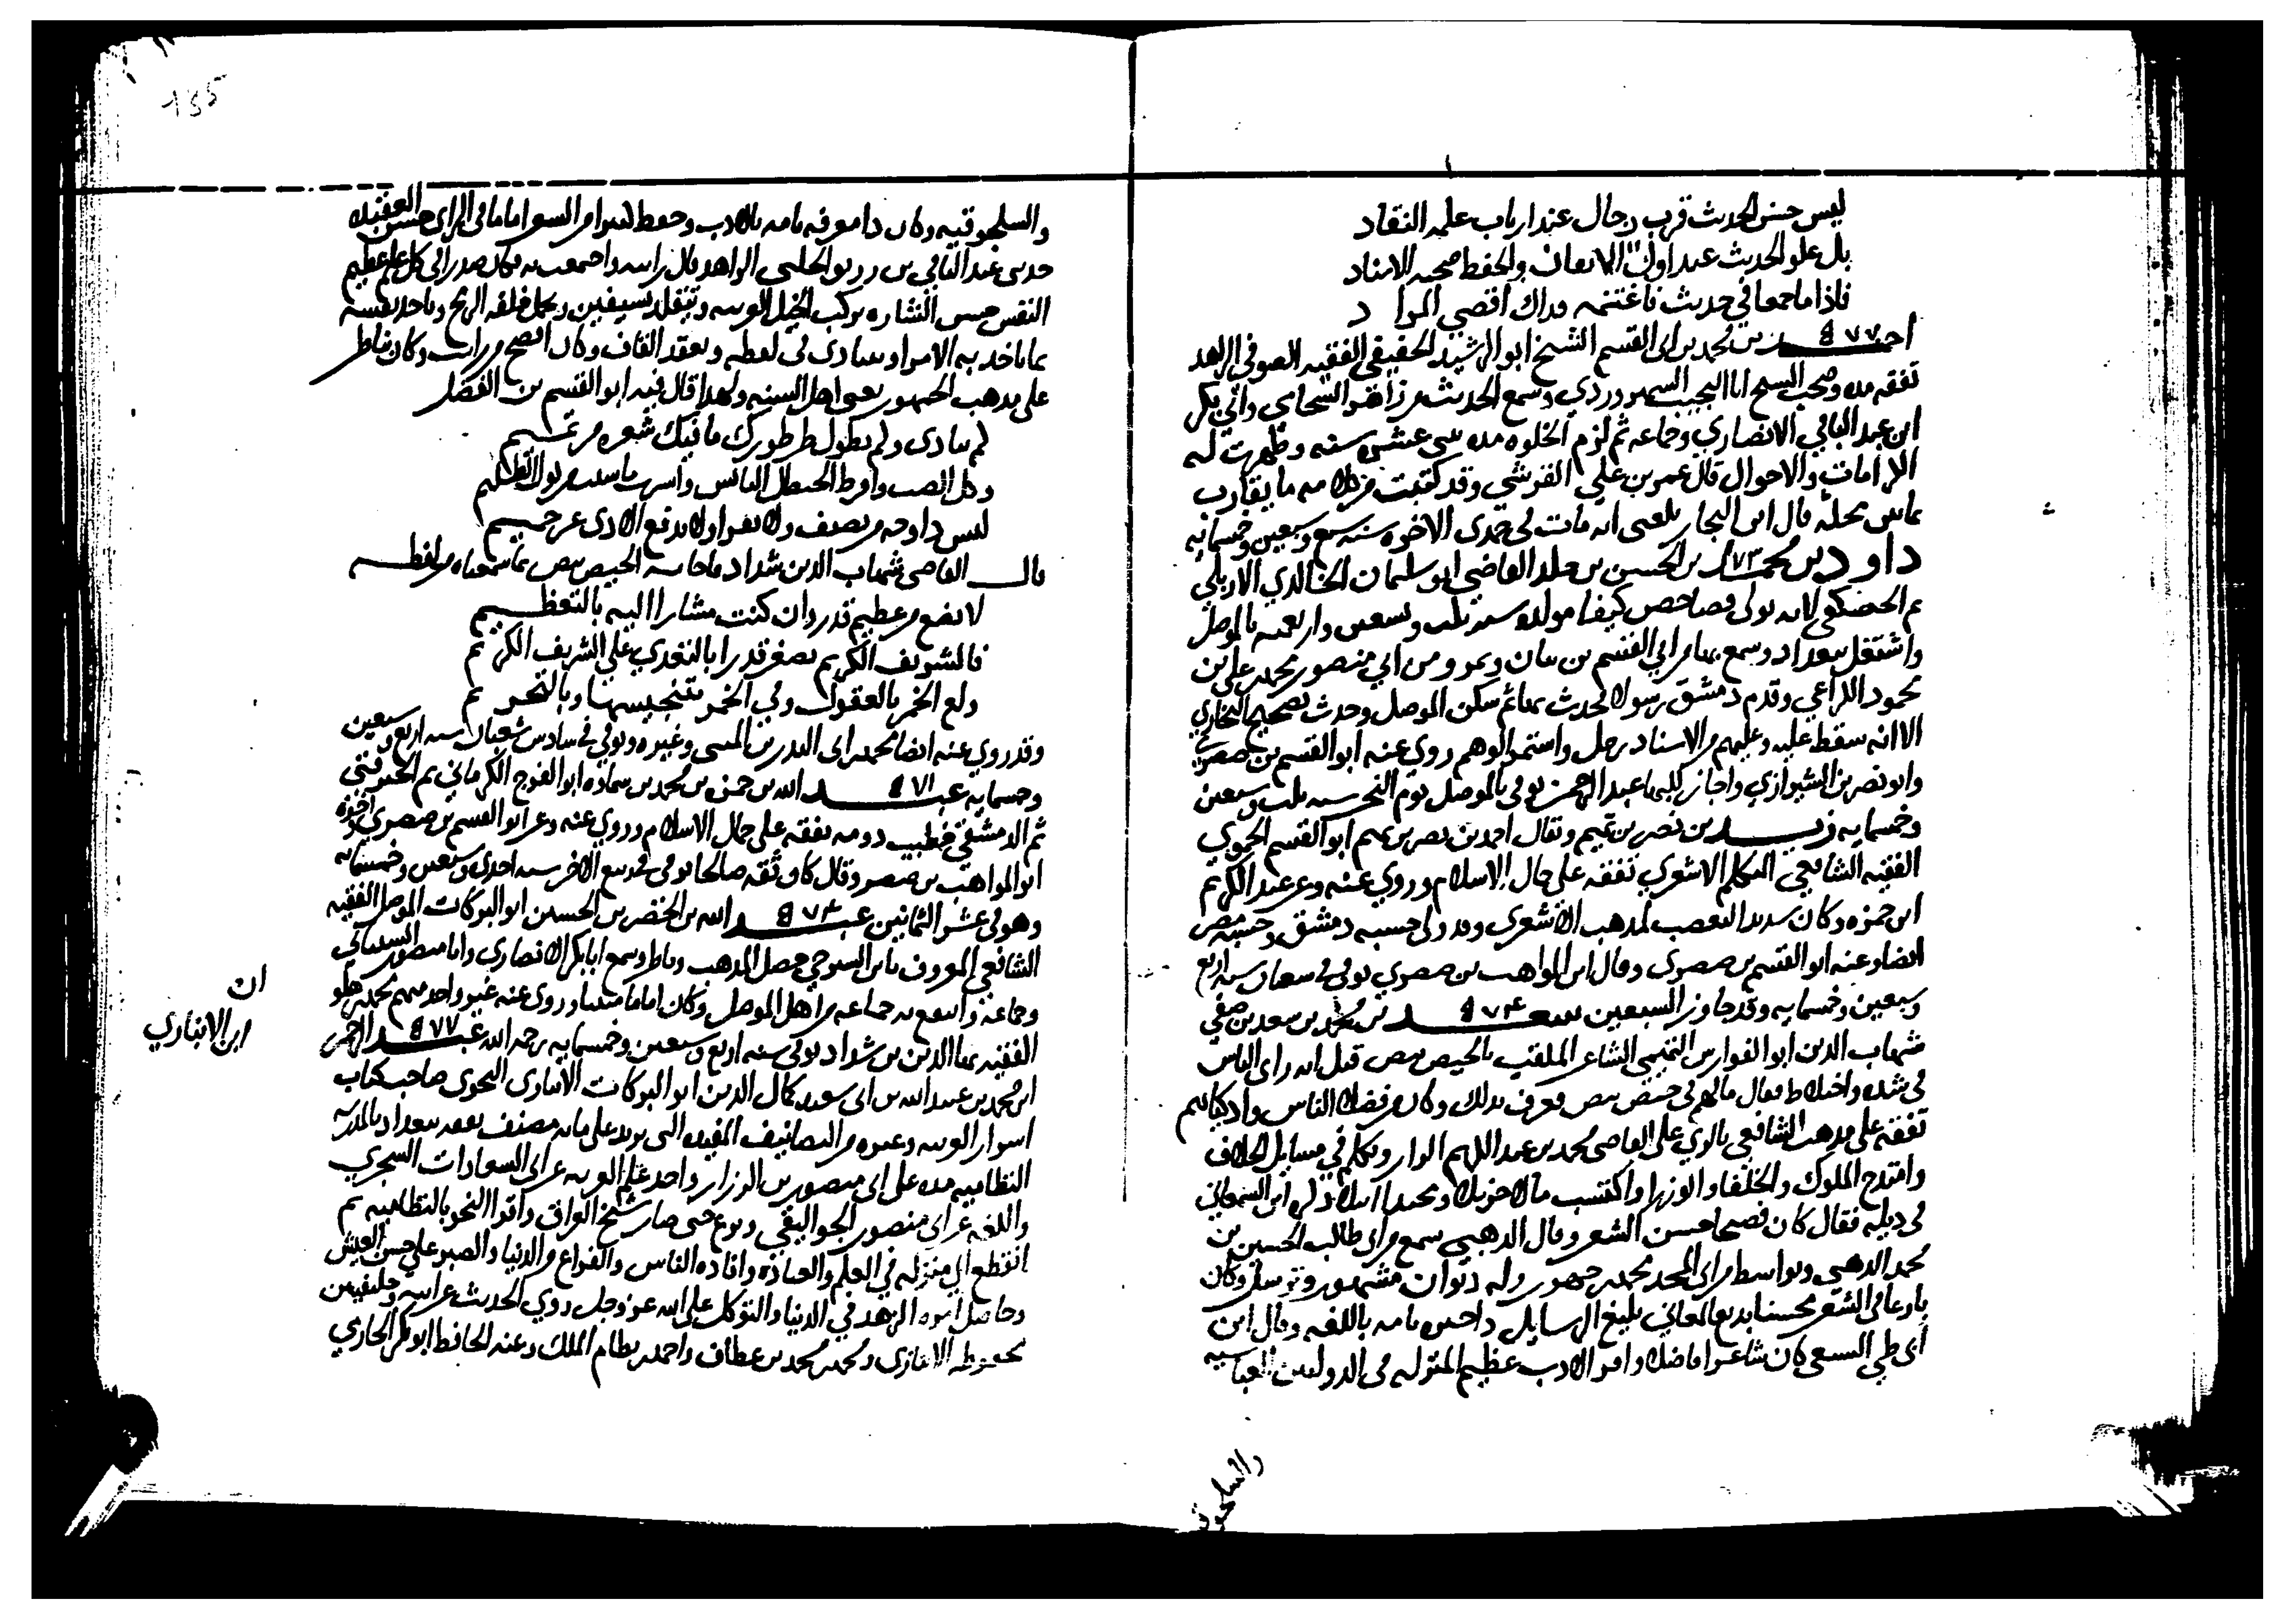 ليس حسن الحديث قرب رجال عند ارباب علمه النقاد
بل علو الحديث عند اولى الاتقان والحفظ صحه الاسناد
فاذا ما جمعا في حديث فاغتنمه فذاك اقصي المراد
احمد ٥٧٧ بن محمد بن ابى القسم الشيخ ابو الرشيد الخفيفي الفقيه الصوفى الزاهد
تفقه مده وصحب الشيخ ابا النجيب السهروردي وسمع الحديث من زاهر الشحامى وابي بكر
ابن عبد الباقي الانصاري وجماعه ثم لزم الخلوه مده ثنى عشره سنه وظهرت له
الكرامات والاحوال قال عمر بن علي القرشي وقد كتبت من كلامه ما يقارب
ثمانين مجلد قال ابن النجار بلغنى انه مات فى جمدى الاخره سنه سبع وسبعين وخمسمايه
داود بن محمد ٥٧٣ بن الحسين بن خلد القاضي ابو سليمان الخالدي الاربلي
ثم الحصكفى لانه تولى قضا حصن كيفا مولده سنه ثلث وتسعين واربعمه بالموصل
واشتغل ببغداد وسمع بها من ابي القسم بن بيان وبمرو من ابي منصور محمد بن على بن
محمود الكراعي وقدم دمشق رسولا فحدث بها ثم سكن الموصل وحدث بصحيح البخاري
الا انه سقط عليه وعليهم من الاسناد رجل واستمر الوهم روى عنه ابو القسم بن صصرى
وابو نصر بن الشيرازي واجاز للبها عبد الرحمن توفى بالموصل يوم النحر سنه ثلث وسبعين
وخمسمايه زيد بن نصر بن تميم ويقال احمد بن نصر بن تميم ابو القسم الحموي
الفقيه الشافعي المتكلم الاشعري تفقه على جمال الاسلام وروي عنه وعن عبد الكريم
ابن حمزه وكان شديد التعصب لمذهب الاشعرى وقد ولى حسبه دمشق وحسبه مصر
ايضا وعنه ابو القسم بن صصرى وقال ابن المواهب بن صصري توفى فى شعبان سنه اربع
وسبعين وخمسمايه وقد جاوز السبعين سعد ٥٧٤ بن محمد بن سعد بن صفي
شهاب الدين ابو الفوارس التميمي الشاعر الملقب بالحيص بيص قيل انه راى الناس
فى شده واختلاط فقال ما لهم فى حيص بيص فعرف بذلك وكان من فضلا الناس وادبايهم
تفقه على مذهب الشافعي بالري على القاضى محمد بن عبد الكريم الوزان وتكلم في مسايل الخلاف
وامتدح الملوك والخلفا والوزرا واكتسب مالا جزيلا ومجدا اثيلا ذكره ابن السمعاني
فى ذيله فقال كان فصيحا حسن الشعر وقال الذهبى سمع من ابى طالب الحسين بن
محمد الزينبى وبواسط من ابى المجد محمد بن جهور وله ديوان مشهور وترسل وكان
بارعا فى الشعر محسنا بديع المعاني بليغ الرسايل ذا خبره تامه باللغه وقال ابن
ابى طي الشيعى كان شاعرا فاضلا وافر الادب عظيم المنزله فى الدولتين العباسيه
والسلجوقيه
155
والسلجوقيه وكان ذا معرفه تامه بالادب وحفظ لاشعار اماما في الراى حسن العقيده
حدثنى عبد الباقي بن زريق الحلبى الزاهد قال رايته واجتمعت به فكان صدرا فى كل علم عظيم
النفس حسن الشاره يركب الخيل العربيه ويتقلد بسيفين ويحمل خلفه الرمح وياخذ نفسه
بما ياخذ به الامرا ويتبادى فى لفظه ويعقد القاف وكان افصح من رايت وكان يناظر
على مذهب الجمهور يعنى اهل السنه ولهذا قال فيه ابو القسم بن الفضل
لم تبادى ولم تطول طرطورك ما فيك شعره من تميم
وكل الضب واقرط الحنظل اليابس واشرب ما شيت من بول الظليم
ليس ذا وجه من يضيف ولا يقرى ولا يدفع الاذى عن حريم
قال القاضى شهاب الدين شداد فاجابه الحيص بيص بما سمعناه من لفظه
لا تضع من عظيم قدر وان كنت مشارا اليه بالتعظيم
فالشريف الكريم يصغر قدرا بالتعدي على الشريف الكريم
ولع الخمر بالعقول رمى الخمر بتنجيسها وبالتحريم
وقد روي عنه ايضا محمد بن ابى البدر بن المنى وغيره وتوفى في سادس شعبان سنه اربع وسبعين
وخمسمايه عبد ٥٧١ الله بن حمزه بن محمد بن سماوه ابو الفرج الكرماني ثم الجيرفتي
ثم الدمشقي خطيب دومه تفقه على جمال الاسلام وروي عنه وعن ابو القسم بن صصري واخوه
ابو المواهب بن صصرى وقال كان ثقه صالحا توفى فى ربيع الاخر سنه احدى وسبعين وخمسمايه
وهو فى عشر الثمانين عبد ٥٧٤ الله بن الخضر بن الحسين ابو البركات الموصلى الفقيه
الشافعى المعروف بابن الشيرجي حصل المذهب وناظر وسمع ابا بكر الانصارى وابا منصور الشيبانى
وجماعه وانتفع به جماعه من اهل الموصل وكان اماما متفننا روى عنه غير واحد منهم محمد بن علو
الفقيه بها الدين بن شداد توفى سنه اربع وسبعين وخمسمايه رحمه الله عبد ٥٧٧ الرحمن
ابن محمد بن عبيد الله بن ابى سعيد كمال الدين ابو البركات الانبارى النحوى صاحب كتاب
اسرار العربيه وغيره من التصانيف المفيده التى تزيد على مايه مصنف تفقه ببغداد بالمدرسه
النظاميه مده على ابى منصور بن الرزاز واخذ علم العربيه عن ابى السعادات الشجري
واللغه عن ابى منصور الجواليقي وبرع حتى صار شيخ العراق واقرا النحو بالنظاميه ثم
انقطع الى منزله في العلم والعباده وافاده الناس والفراغ من الدنيا والصبر على خشن العيش
وحاصل امره الزهد في الدنيا والتوكل على الله عز وجل روي الحديث عن ابيه وخليفه بن
محفوظ الانبارى ومحمد بن محمد بن عطاف واحمد بن نظام الملك وعنه الحافظ ابو بكر الحازمي
ابن الانباري